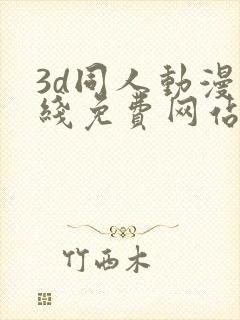 3d同人動漫
綫免費网佔
竹西木